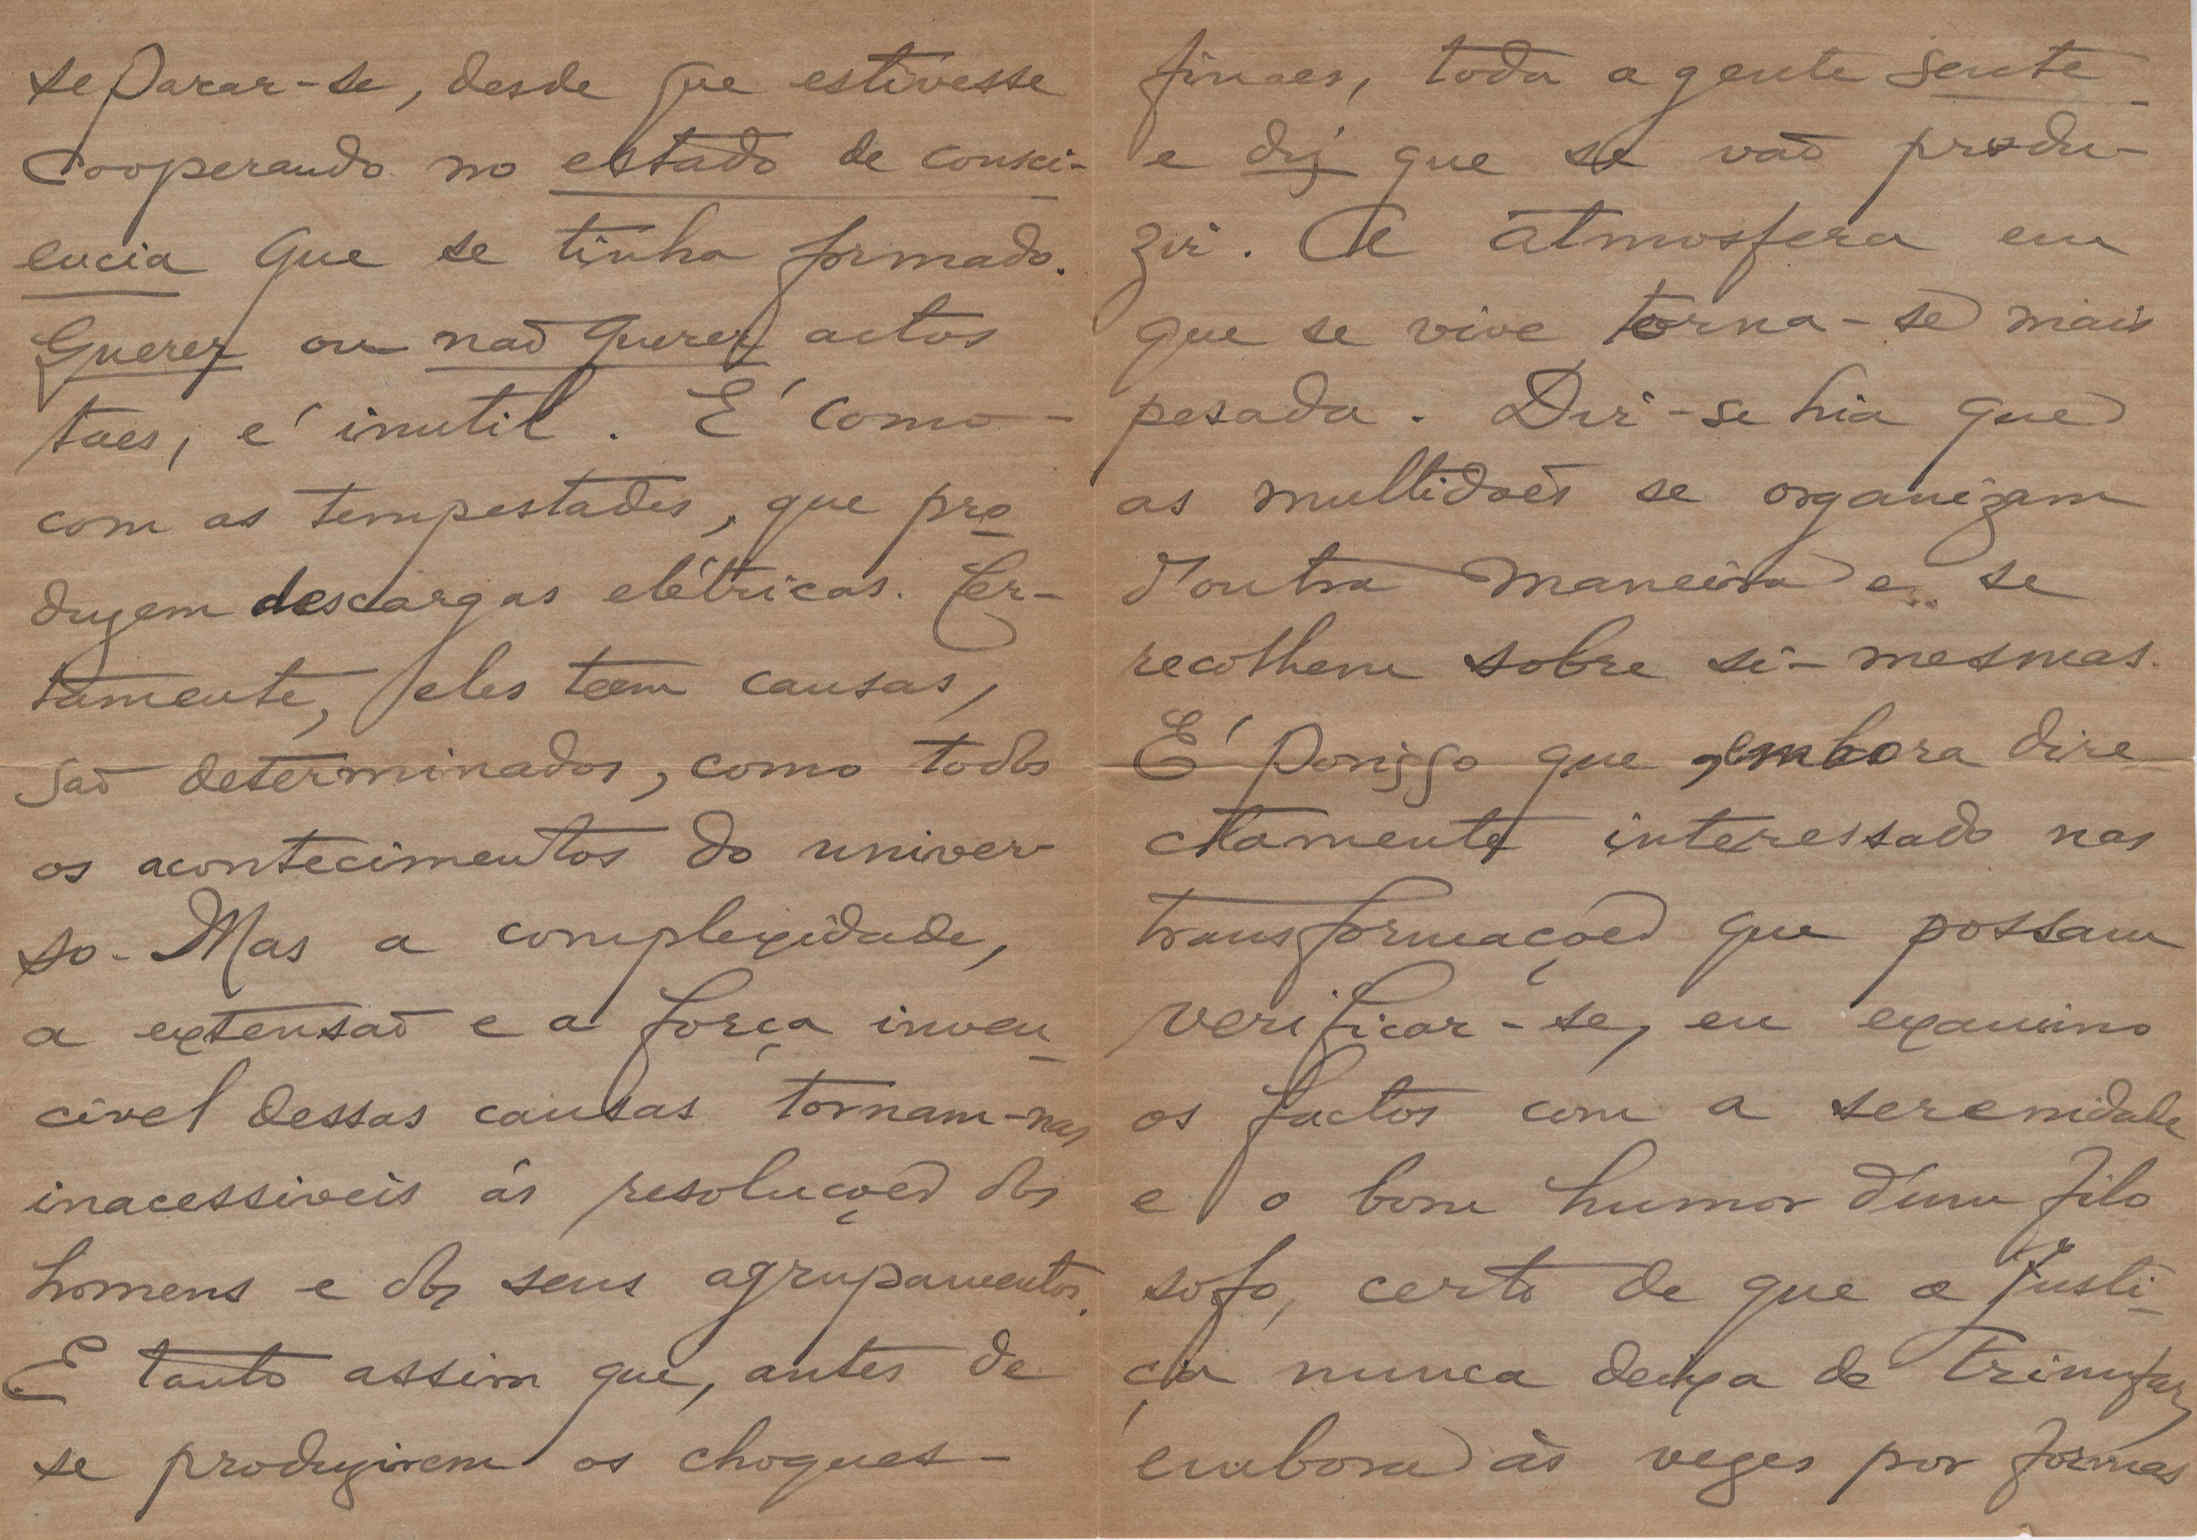 separar-se, desde que estivesse
cooperando no estado de consci-
encia que se tinha formado.
Querer ou não querer actos
taes, é inutil. E' como
com as tempestades, que pro-
duzem descargas elétricas. Cer-
tamente, eles teem causas,
são determinados, como todos
os acontecimentos do univer-
so. Mas a complexidade,
a extensão e a força inven-
civel dessas causas tornam-nas
inacessiveis ás resoluções dos
homens e dos seus agrupamentos.
E tanto assim que, antes de
se produzirem os choques
finaes, toda a gente sente
e diz que se vão produ-
zir. A atmosfera em
que se vive torna-se mais
pesada. Dir-se hia que
as multidões se organizam
d'outra maneira e se
recolhem sobre si-mesmas.
E' porisso que, embora dire-
ctamente interessado nas
transformações que possam
verificar-se, eu examino
os factos com a serenidade
e o bom humor d'um filo
sofo, certo de que a justi-
ça nunca deixa de triunfar,
embora ás vezes por formas